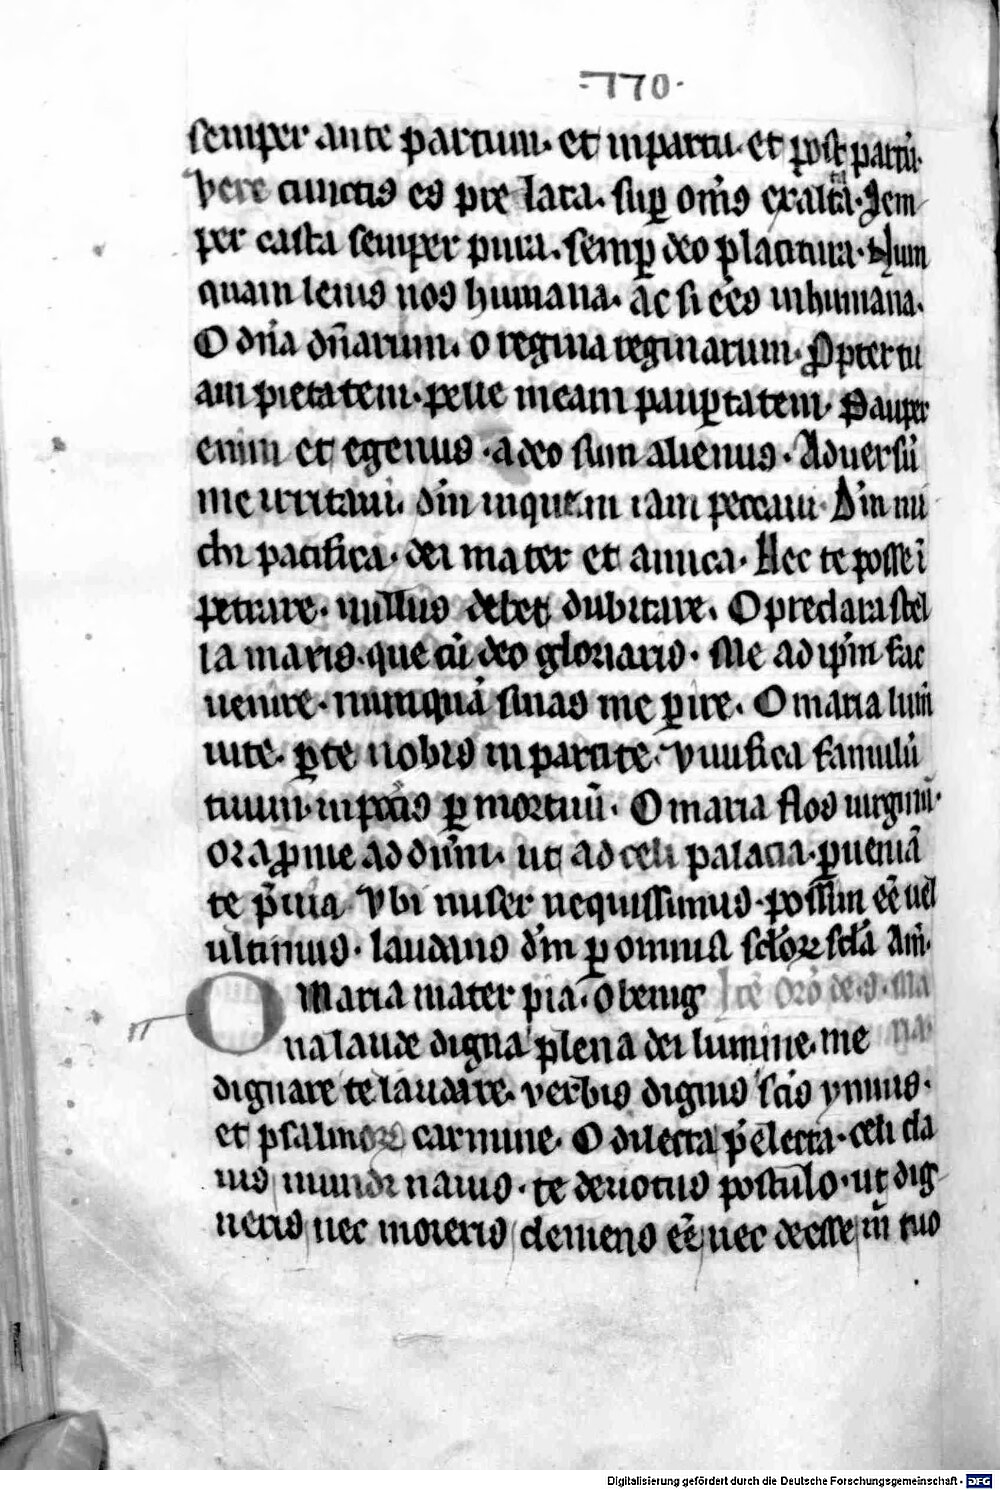 ·770·
semper ante partum· et inpartu· et post partū·
vere cunctis es pre lata· suꝑ om̄s exaltata· Sem
per casta semper pura· semꝑ deo placitura· Nun
quam lenis nos humana· ac si ēēs inhumana·
O dn̄a dn̄arum· o regina reginarum· ꝓpter tu
am pietatem· pelle meam pauꝑtatem· Pauper
enim et egenus· a deo sum alienus· Aduersū
me irritaui· dm̄ inquem iam peccaui· Dm̄ mi
chi pacifica· dei mater et amica· Hec te posse ī
petrare· nullus debet dubitare· O preclara stel
la maris· que cū deo gloriaris· Me ad ip̄m fac
uenire· numquā sinas me ꝑire· O maria lum̄
uite· ꝑte nobis inpartite· viuifica famulū
tuum· inpctīs ꝑ mortuū· O maria flos uirginū·
ora ꝓ me ad dūm· ut ad celi palacia· ꝑueniā
te p̄uia· Vbi miser nequissimus· possim ēē uel
ultimus· laudans dm̄ ꝑ omnia sclōꝝ sclā Am̄·
O Maria mater pia· o benig Itē orō de· s· Ma
na laude digna plena dei lumine· me ria·
dignare te laudare· verbis dignis scīs ymnis·
et psalmoꝝ carmine· O dilecta p̄electa· celi cla
uis mundi nauis· te deuotus postulo· ut dig
neris nec moreris clemens ēē nec deesse m̄ tuo
Digitalisierung gefördert durch die Deutsche Forschungsgemeinschaft - DFG